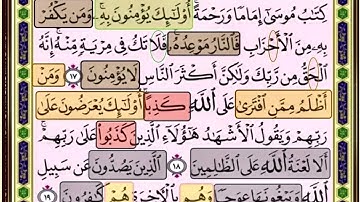 كِتَٰبُ مُوسَىٰٓ إِمَامًا وَرَحْمَةً ۚ أُو۟لَٰٓئِكَ يُؤْمِنُونَ بِهِۦ ۚ وَمَن يَكْفُرْ
بِهِۦ مِنَ ٱلْأَحْزَابِ فَٱلنَّارُ مَوْعِدُهُۥ ۚ فَلَا تَكُ فِى مِرْيَةٍ مِّنْهُ ۚ إِنَّهُ
ٱلْحَقُّ مِن رَّبِّكَ وَلَٰكِنَّ أَكْثَرَ ٱلنَّاسِ لَا يُؤْمِنُونَ ١٧ وَمَنْ
أَظْلَمُ مِمَّنِ ٱفْتَرَىٰ عَلَى ٱللَّهِ كَذِبًا ۚ أُو۟لَٰٓئِكَ يُعْرَضُونَ عَلَىٰ
رَبِّهِمْ وَيَقُولُ ٱلْأَشْهَٰدُ هَٰٓؤُلَآءِ ٱلَّذِينَ كَذَبُوا۟ عَلَىٰ رَبِّهِمْ ۚ
أَلَا لَعْنَةُ ٱللَّهِ عَلَى ٱلظَّٰلِمِينَ ١٨ ٱلَّذِينَ يَصُدُّونَ عَن سَبِيلِ
ٱللَّهِ وَيَبْغُونَهَا عِوَجًا وَهُم بِٱلْءَاخِرَةِ هُمْ كَٰفِرُونَ ١٩